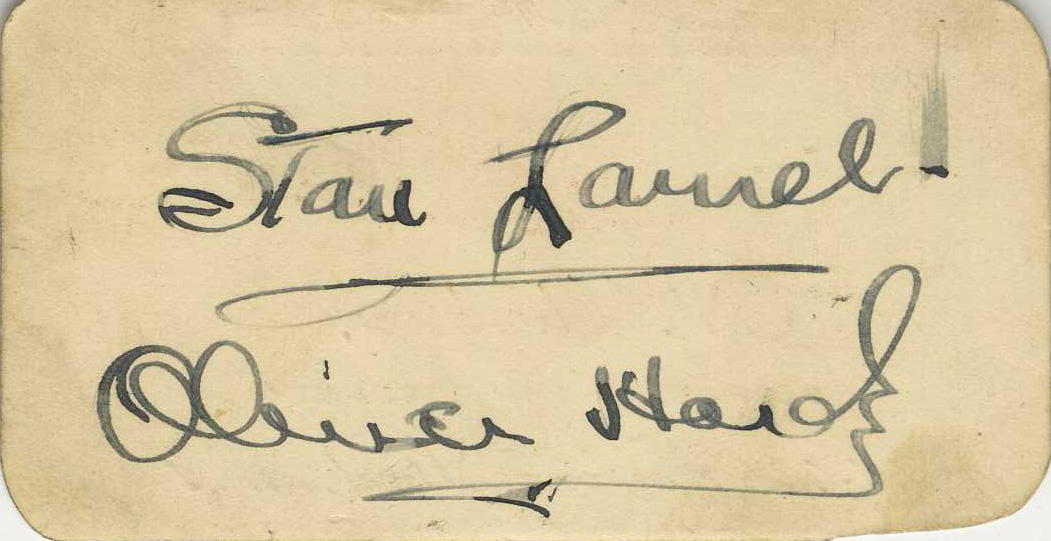 Stan Laurel
Oliver Hardy